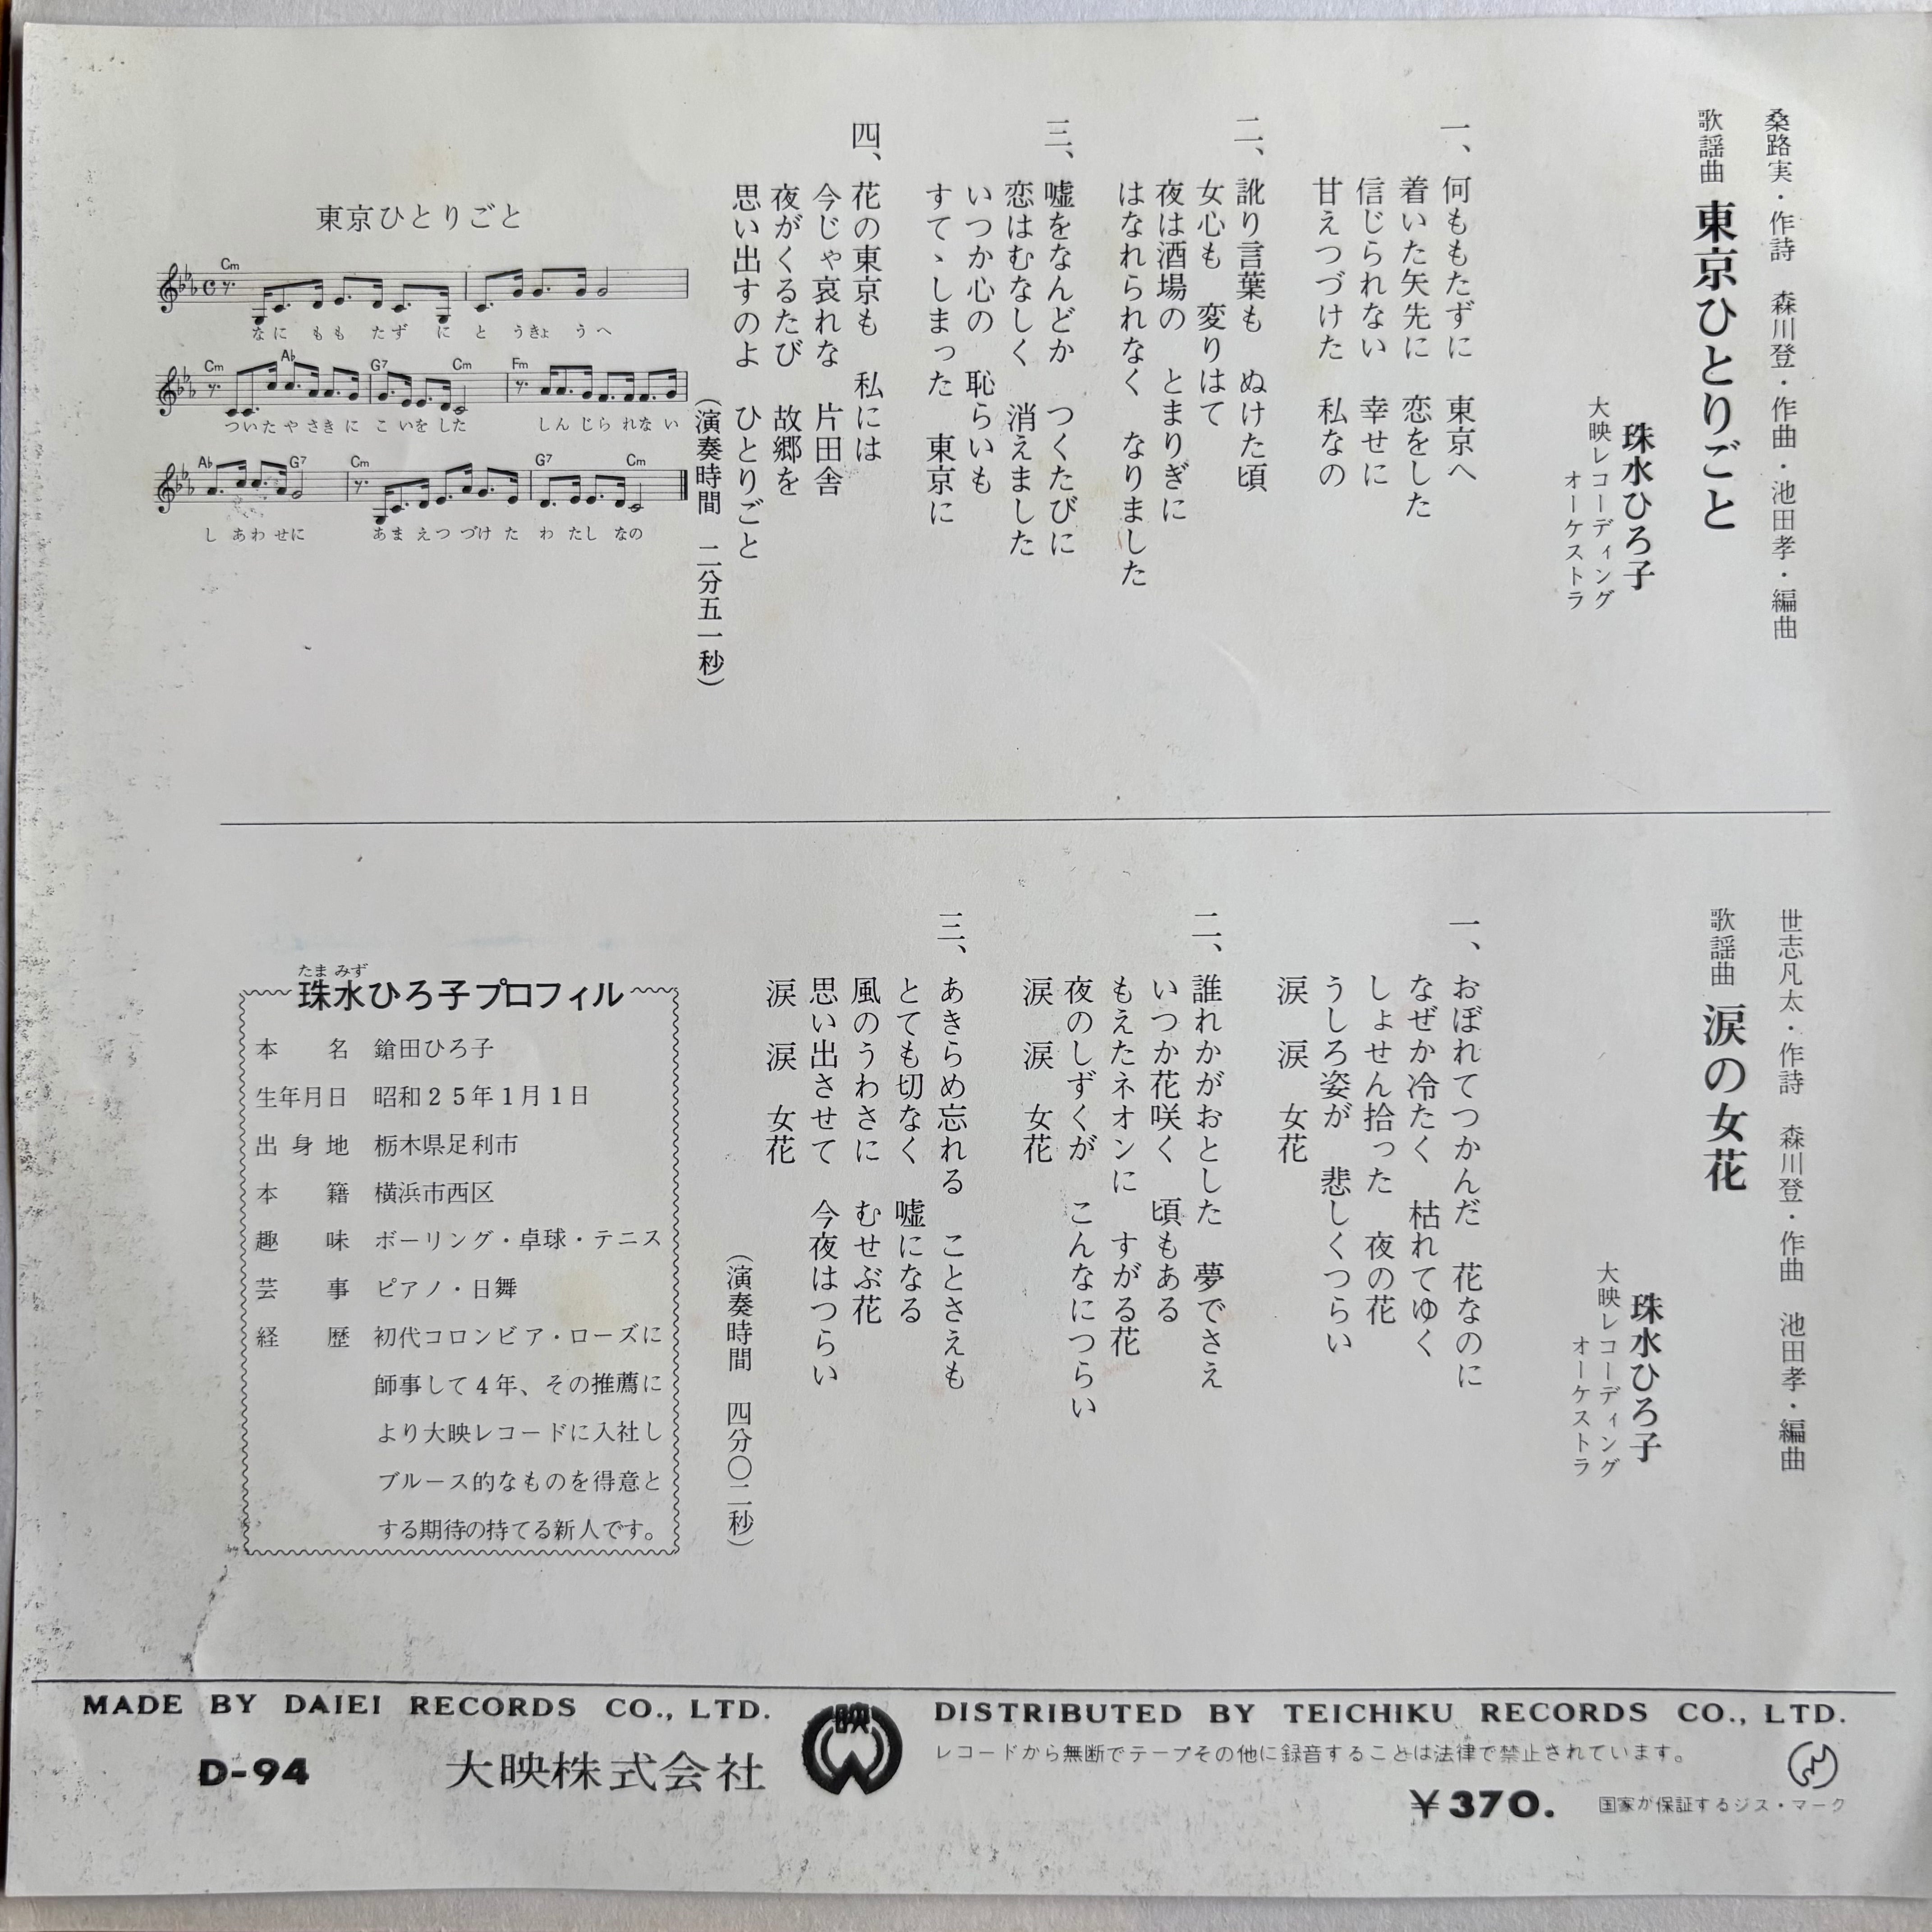 桑路実・作詩　森川登・作曲・池田孝・編曲
歌謡曲　東京ひとりごと
珠水ひろ子
大映レコーディング
オーケストラ
一、何ももたずに　東京へ
着いた矢先に　恋をした
信じられない　幸せに
甘えつづけた　私なの
二、訛り言葉も　ぬけた頃
女心も　変りはて
夜は酒場の　とまりぎに
はなれられなく　なりました
三、嘘をなんどか　つくたびに
恋はむなしく　消えました
いつか心の　恥らいも
すてゝしまった　東京に
四、花の東京も　私には
今じゃ哀れな　片田舎
夜がくるたび　故郷を
思い出すのよ　ひとりごと
（演奏時間　二分五一秒）
東京ひとりごと
Cm
なに もも たず に と うきょ うへ
Cm A♭ G7 Cm Fm
ついた や さき に こ いを した しん じら れな い
A♭ G7 Cm G7 Cm
し あわ せに あま えつ づけ た わ たし なの
世志凡太・作詩　森川登・作曲　池田孝・編曲
歌謡曲　涙の女花
珠水ひろ子
大映レコーディング
オーケストラ
一、おぼれてつかんだ　花なのに
なぜか冷たく　枯れてゆく
しょせん拾った　夜の花
うしろ姿が　悲しくつらい
涙　涙　女花
二、誰れかがおとした　夢でさえ
いつか花咲く　頃もある
もえたネオンに　すがる花
夜のしずくが　こんなにつらい
涙　涙　女花
三、あきらめ忘れる　ことさえも
とても切なく　嘘になる
風のうわさに　むせぶ花
思い出させて　今夜はつらい
涙　涙　女花
（演奏時間　四分〇二秒）
たま みず
珠水ひろ子プロフィル
本名　鎗田ひろ子
生年月日　昭和25年1月1日
出身地　栃木県足利市
本籍　横浜市西区
趣味　ボーリング・卓球・テニス
芸事　ピアノ・日舞
経歴　初代コロンビア・ローズに
師事して4年、その推薦に
より大映レコードに入社し
ブルース的なものを得意と
する期待の持てる新人です。
MADE BY DAIEI RECORDS CO., LTD.
D-94　大映株式会社
映
DISTRIBUTED BY TEICHIKU RECORDS CO., LTD.
レコードから無断でテープその他に録音することは法律で禁止されています。
￥370.
国家が保証するジス・マーク